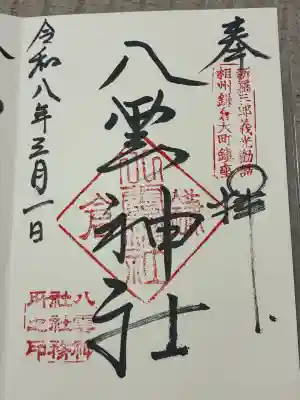 奉拝
新羅三郎義光勧請
相州鎌倉大町鎮座
八雲神社
鎌倉
八雲神社
令和八年三月一日
八雲神社社務所之印